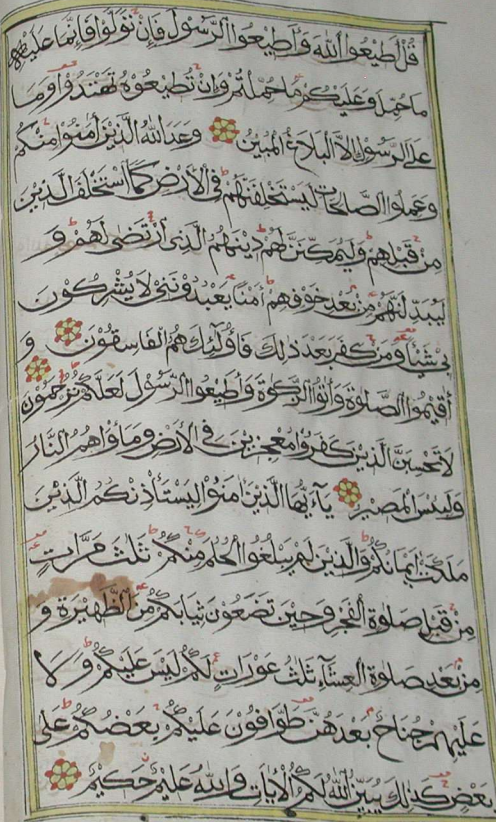 قُلْ أَطِيعُوا اللَّهَ وَأَطِيعُوا الرَّسُولَ فَإِنْ تَوَلَّوْا فَإِنَّمَا عَلَيْهِ
مَا حُمِّلَ وَعَلَيْكُمْ مَا حُمِّلْتُمْ وَإِنْ تُطِيعُوهُ تَهْتَدُوا وَمَا
عَلَى الرَّسُولِ إِلَّا الْبَلَاغُ الْمُبِينُ وَعَدَ اللَّهُ الَّذِينَ آمَنُوا مِنْكُمْ
وَعَمِلُوا الصَّالِحَاتِ لَيَسْتَخْلِفَنَّهُمْ فِي الْأَرْضِ كَمَا اسْتَخْلَفَ الَّذِينَ
مِنْ قَبْلِهِمْ وَلَيُمَكِّنَنَّ لَهُمْ دِينَهُمُ الَّذِي ارْتَضَى لَهُمْ وَ
لَيُبَدِّلَنَّهُمْ مِنْ بَعْدِ خَوْفِهِمْ أَمْنًا يَعْبُدُونَنِي لَا يُشْرِكُونَ
بِي شَيْئًا وَمَنْ كَفَرَ بَعْدَ ذَلِكَ فَأُولَئِكَ هُمُ الْفَاسِقُونَ وَ
أَقِيمُوا الصَّلَوةَ وَآتُوا الزَّكَوةَ وَأَطِيعُوا الرَّسُولَ لَعَلَّكُمْ تُرْحَمُونَ
لَا تَحْسَبَنَّ الَّذِينَ كَفَرُوا مُعْجِزِينَ فِي الْأَرْضِ وَمَأْوَاهُمُ النَّارُ
وَلَبِئْسَ الْمَصِيرُ يَا أَيُّهَا الَّذِينَ آمَنُوا لِيَسْتَأْذِنْكُمُ الَّذِينَ
مَلَكَتْ أَيْمَانُكُمْ وَالَّذِينَ لَمْ يَبْلُغُوا الْحُلُمَ مِنْكُمْ ثَلَثَ مَرَّاتٍ
مِنْ قَبْلِ صَلَوةِ الْفَجْرِ وَحِينَ تَضَعُونَ ثِيَابَكُمْ مِنَ الظَّهِيرَةِ وَ
مِنْ بَعْدِ صَلَوةِ الْعِشَاءِ ثَلَثُ عَوْرَاتٍ لَكُمْ لَيْسَ عَلَيْكُمْ وَلَا
عَلَيْهِمْ جُنَاحٌ بَعْدَهُنَّ طَوَّافُونَ عَلَيْكُمْ بَعْضُكُمْ عَلَى
بَعْضٍ كَذَلِكَ يُبَيِّنُ اللَّهُ لَكُمُ الْآيَاتِ وَاللَّهُ عَلِيمٌ حَكِيمٌ